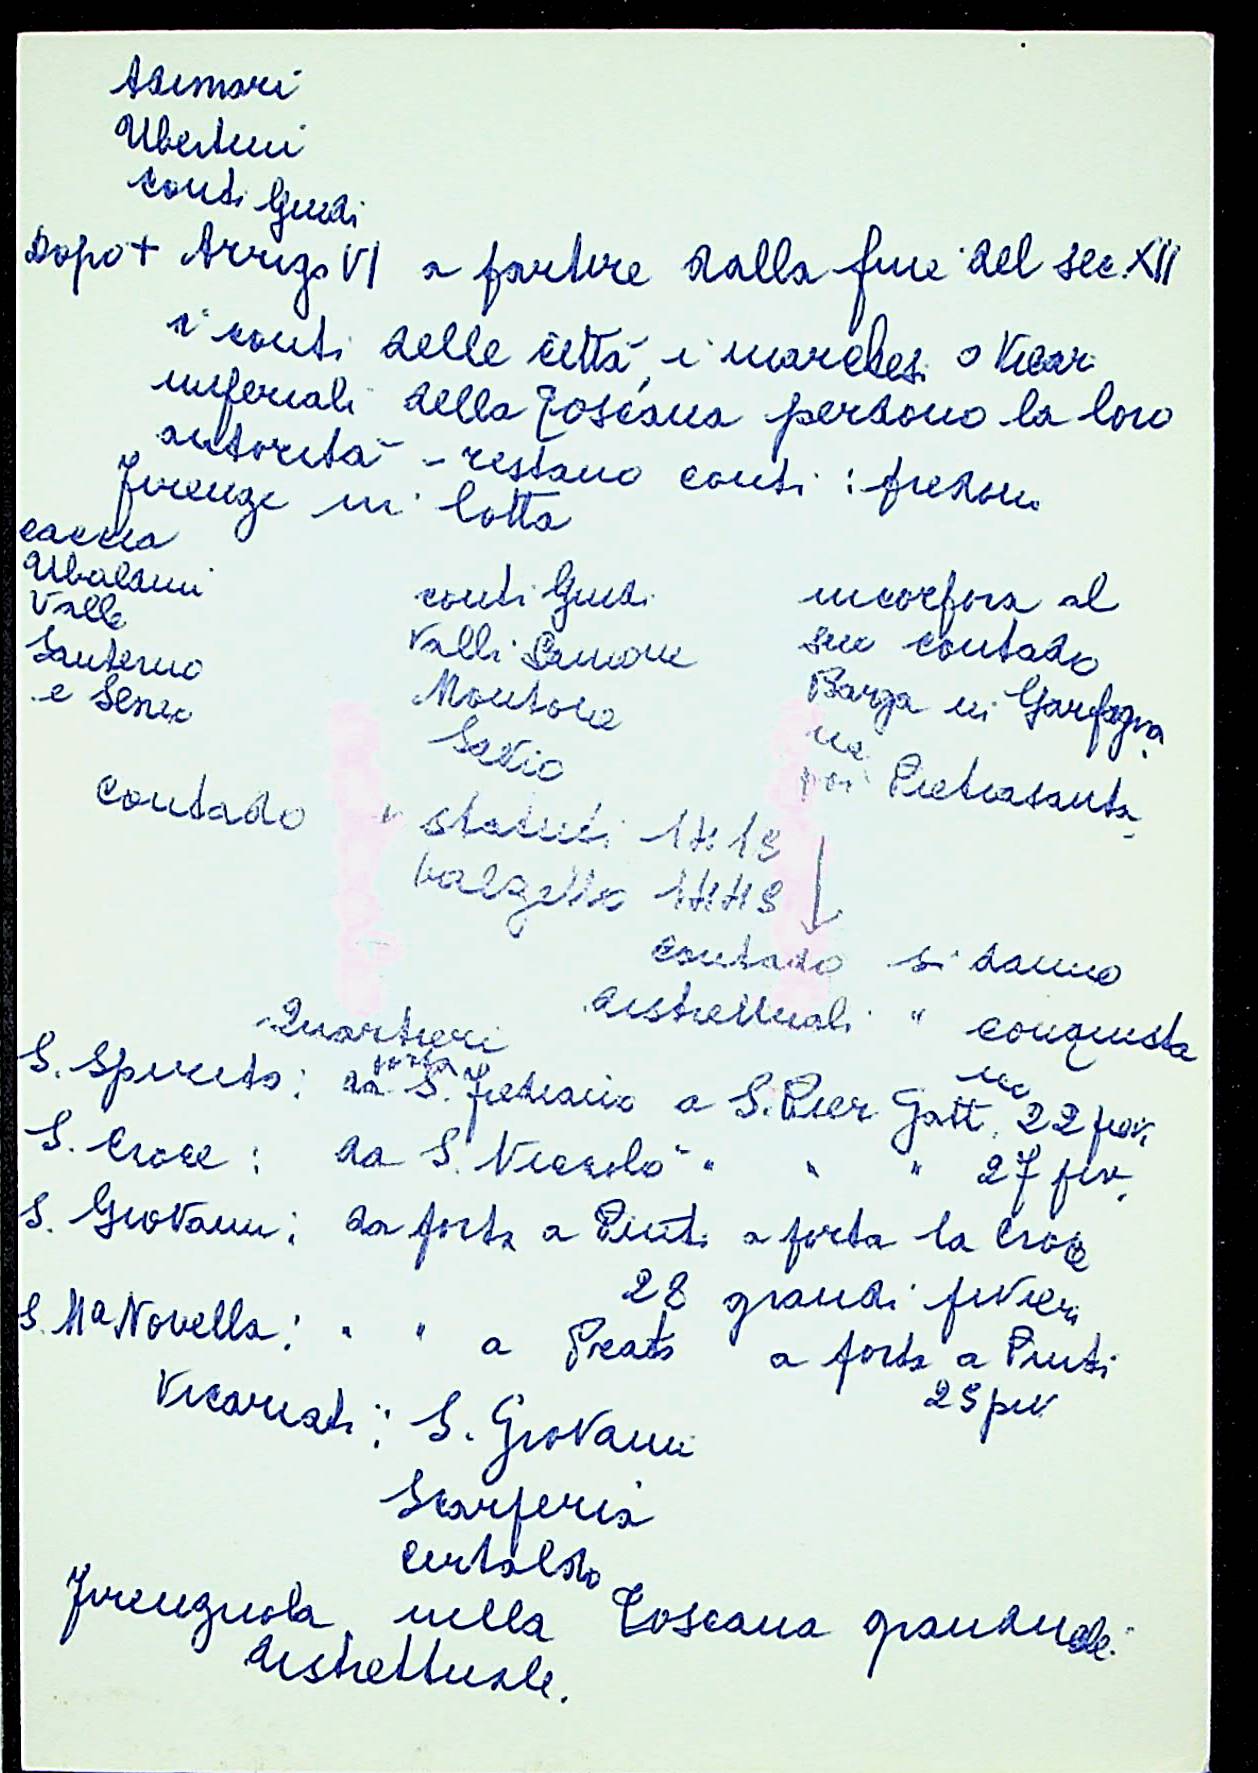 Adimari
Ubertini
conti Guidi
Dopo + Arrigo VI a partire dalla fine del sec. XII
i conti delle città, i marchesi o Vicari
imperiali della Toscana perdono la loro
autorità - restano conti:
Firenze in lotta
caccia
Ubaldini
Valle
Santerno
e Senio
conti Guidi
Valli Lamone
Montone
Savio
incorpora al
suo contado
Barga in Garfagna
na
poi Pietrasanta
contado
statuti 1415
1445
contado si danno
distrettuali " conquista
no
Quartieri
S. Spirito: da porta S. Frediano a S. Pier Gatt. 22 pivi
S. Croce: da S. Niccolò " " " 27 piv.
S. Giovanni: da porta a Pinti a porta la Croce
28 grandi pivieri
S. Ma Novella: " " a Prato a porta a Pinti
25 piv
Vicariati: S. Giovanni
Scarperia
Certaldo
Firenzuola nella Toscana granducale
distrettuale.